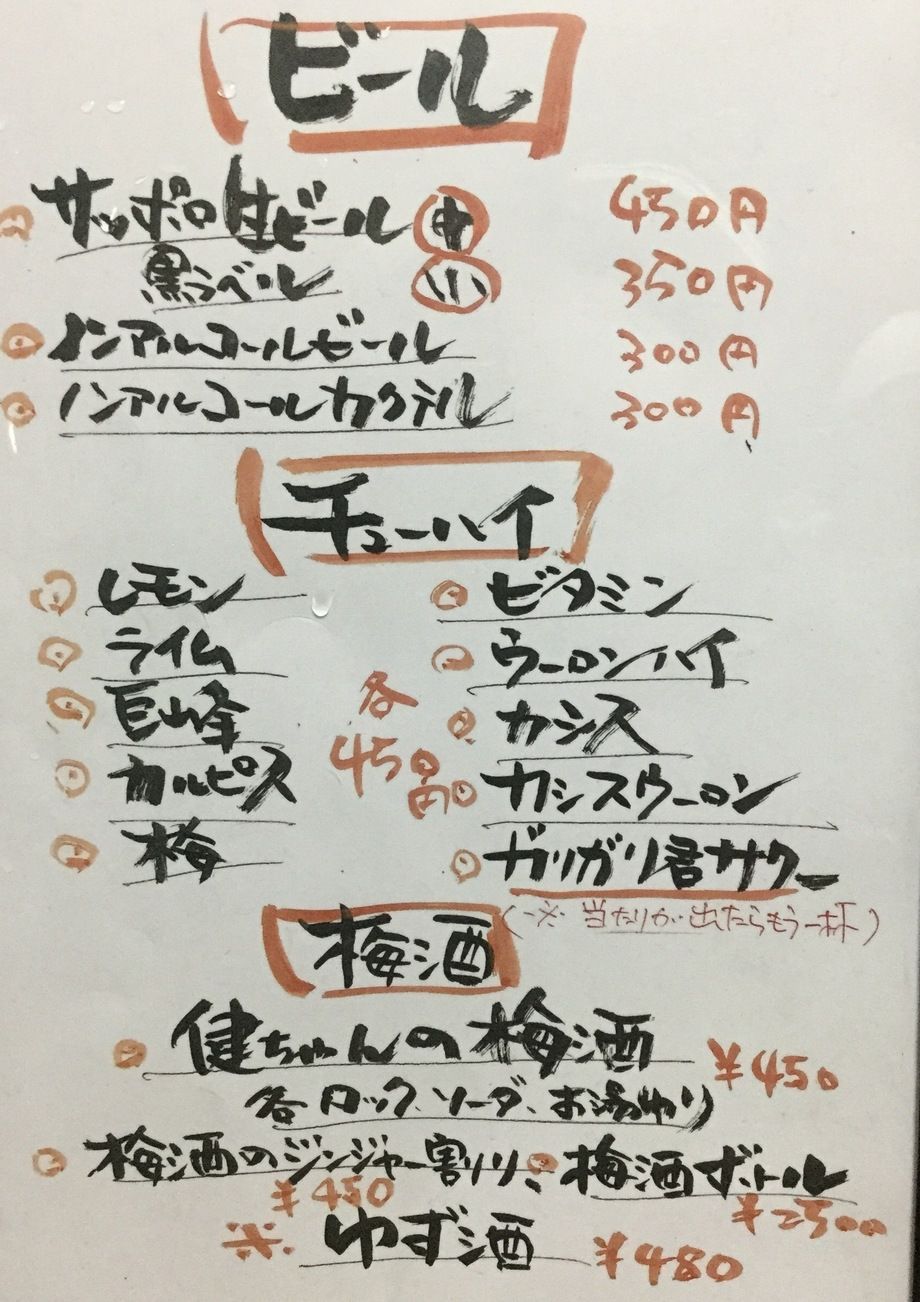 ビール
サッポロ生ビール 中 450円
黒ラベル 小 350円
ノンアルコールビール 300円
ノンアルコールカクテル 300円
チューハイ
レモン
ライム
巨峰
カルピス
梅
各450円
ビタミン
ウーロンハイ
カシス
カシスウーロン
ガリガリ君サワー
(※当たりが出たらもう一杯)
梅酒
健ちゃんの梅酒 ¥450
各ロック、ソーダ、お湯わり
梅酒のジンジャー割り 梅酒ボトル
¥450 ¥2500
※ ゆず酒 ¥480